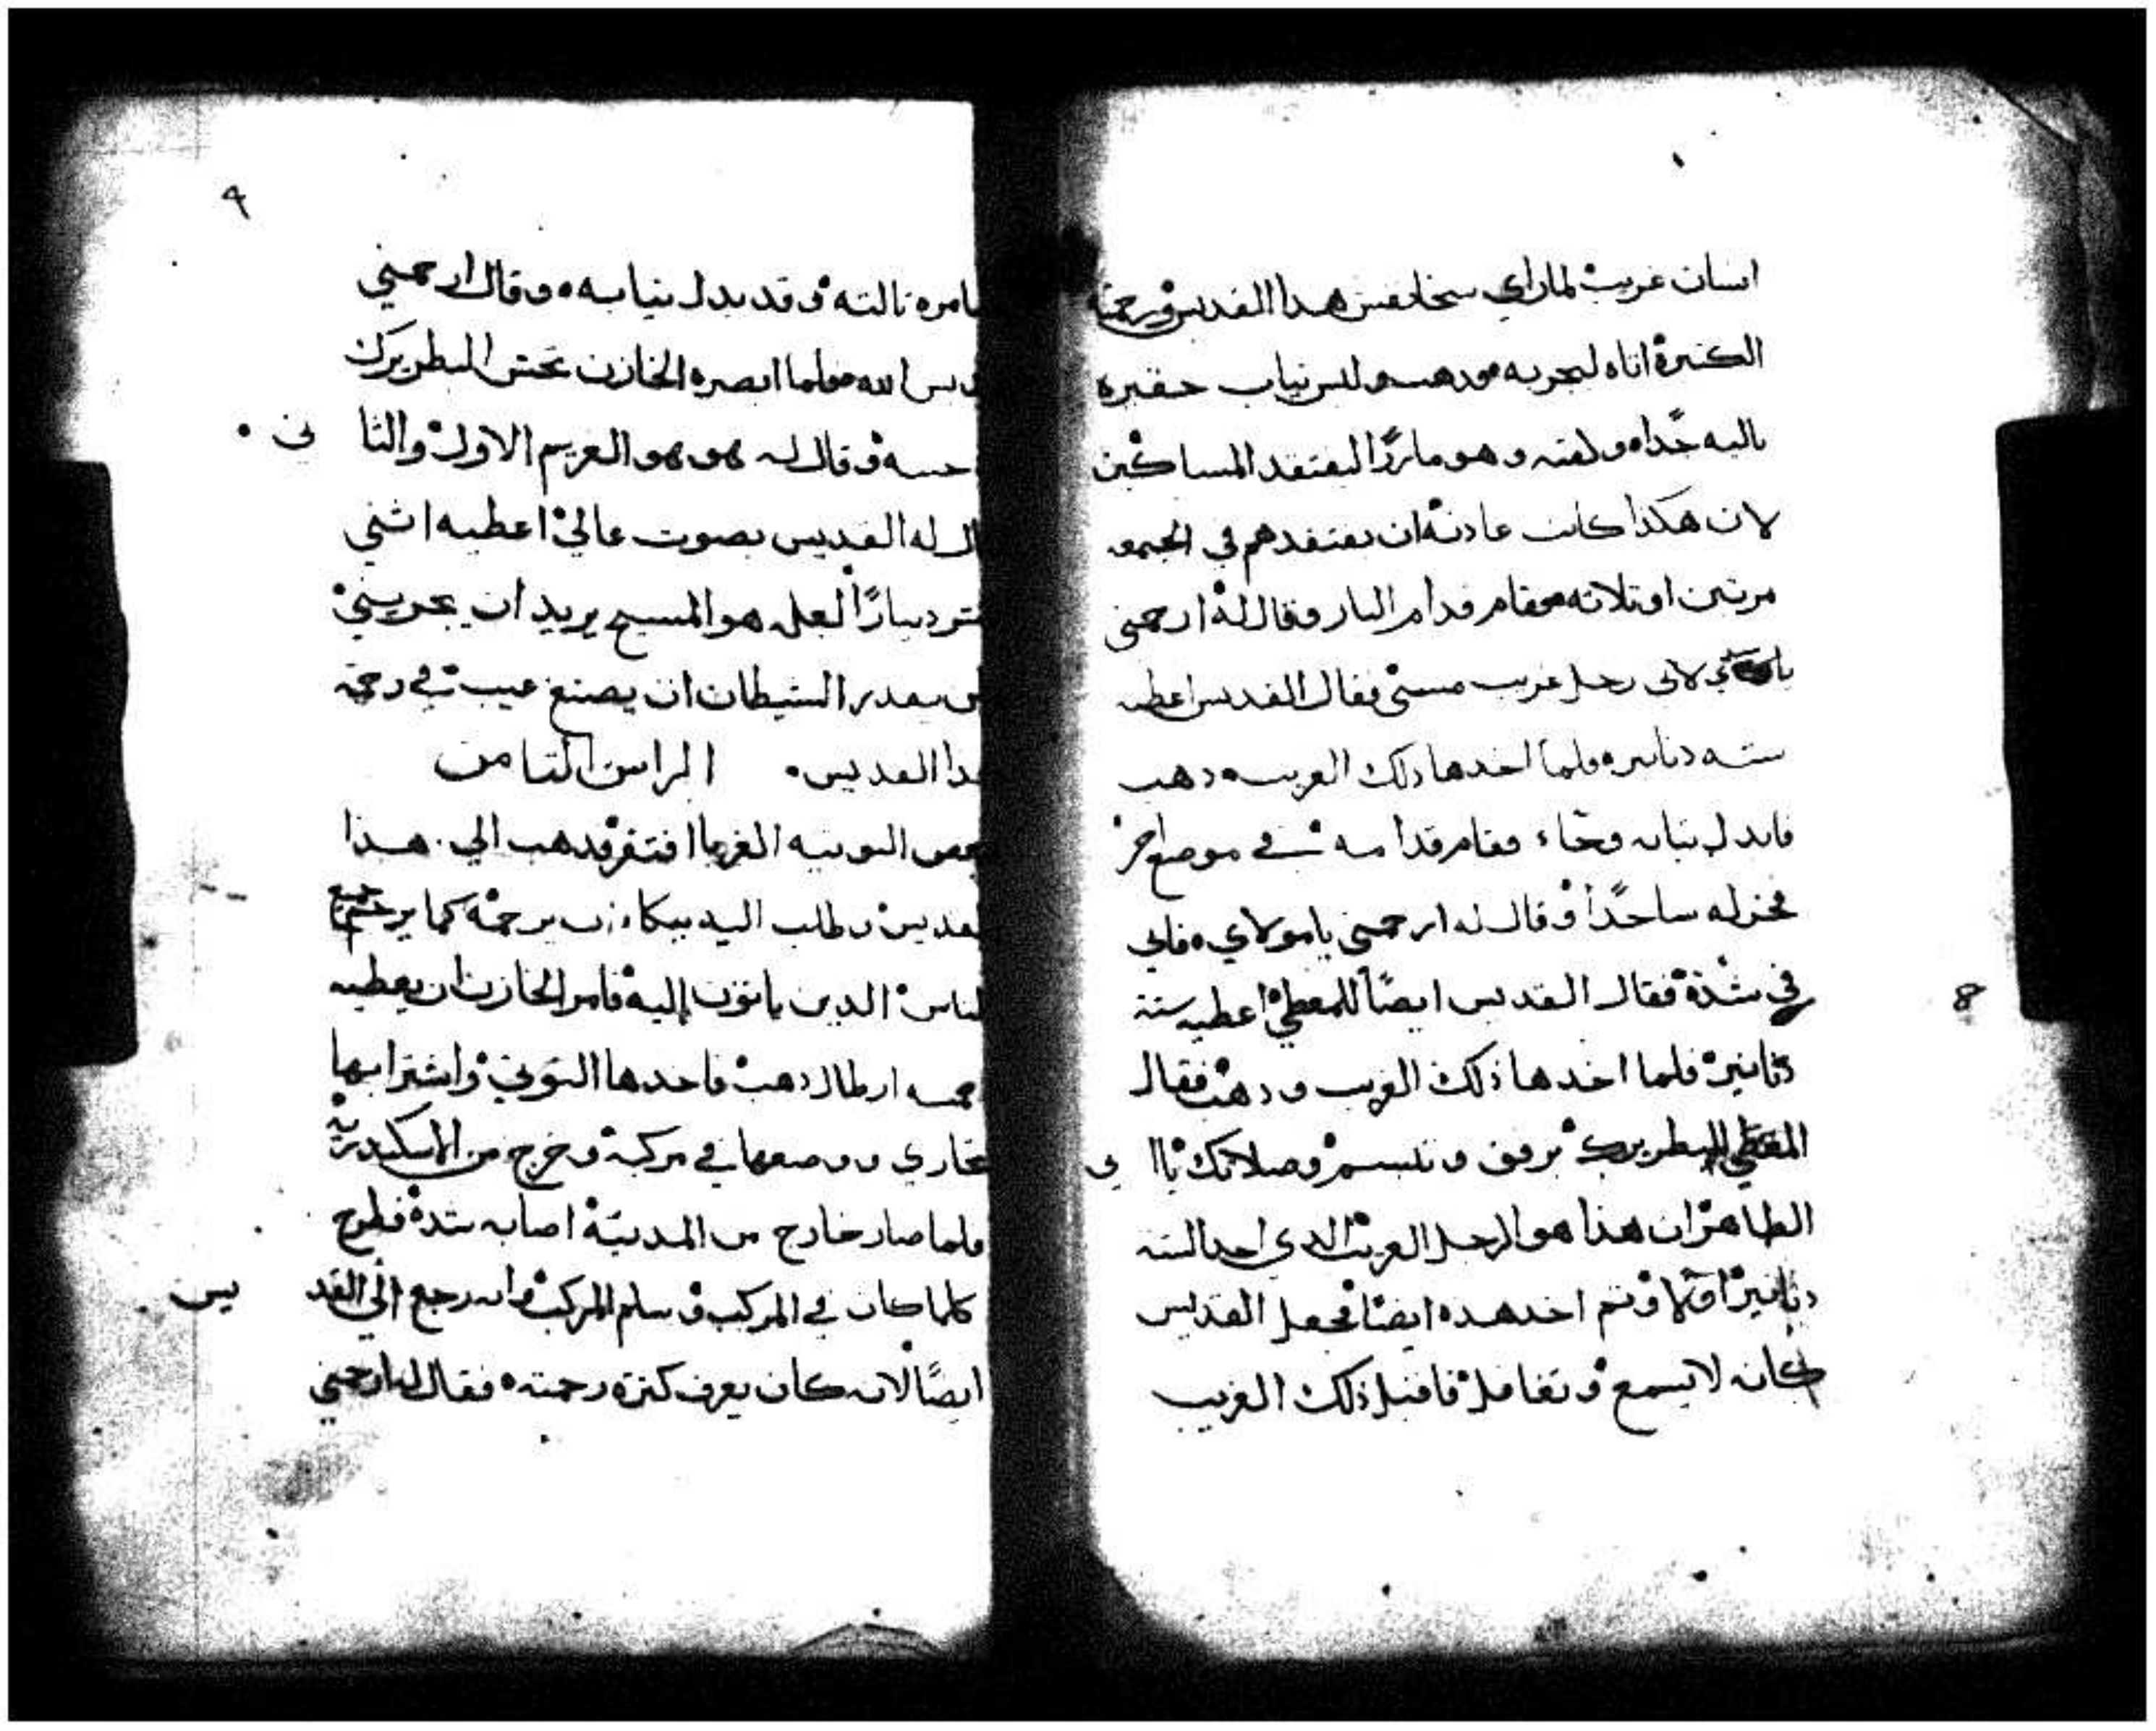 انسان غريب لما راي سخا نفس هدا القديس ورحمته
الكتيره اتاه ليجربه فدهب ولبس تياب حقيره
باليه جدًا ولقته وهو مارًا ليفتقد المساكين
لان هكدا كانت عادته ان يفتقدهم في الجمعه
مرتين او تلاته فقام قدام البار وقال له ارحمني
لاني رجل غريب مسبي فقال القديس اعطيه
سته دنانير فلما اخدها دلك الغريب دهب
فابدل تيابه وجاء فقام قدامه في موضع اخر
فخر له ساجدًا وقال له ارحمني يا مولاي فاني
في شدة فقال القديس ايضًا للمعطي اعطيه ستة
دنانير فلما اخدها ذلك الغريب ودهب فقال
المعطي للبطريرك برفق وتبسم وصلاتك يا ابي
الطاهر ان هذا هو الرجل الغريب الدي اخد السته
دنانير اولا وتم اخد هده ايضًا فجعل القديس
كانه لا يسمع وتغافل فاقبل ذلك الغريب
٩
مره تالته وقد بدل تيابه وقال ارحمني
فلما ابصره الخازن تحتش البطريرك
وقال له هو هو الغريم الاول والثاني
له القديس بصوت عالي اعطيه اثني
دينارًا لعله هو المسيح يريد ان يجربني
يقدر الشيطان ان يصنع عيب في رحمة
القديس الراس التامن
بعض النوتيه الغربا افتقر فدهب الي هذا
القديس وطلب اليه ببكاء ان يرحمه كما يرحم جميع
الناس الدين ياتون اليه فامر الخازن ان يعطيه
خمسه ارطال دهب فاخدها النوتي واشترا بها
ووضعها في مركبه وخرج من الاسكندريه
فلما صار خارج من المدينة اصابه شدة فطرح
كلما كان في المركب وسلم المركب وانه رجع الي القديس
ايضًا لانه كان يعرف كترة رحمته فقال له ارحمني